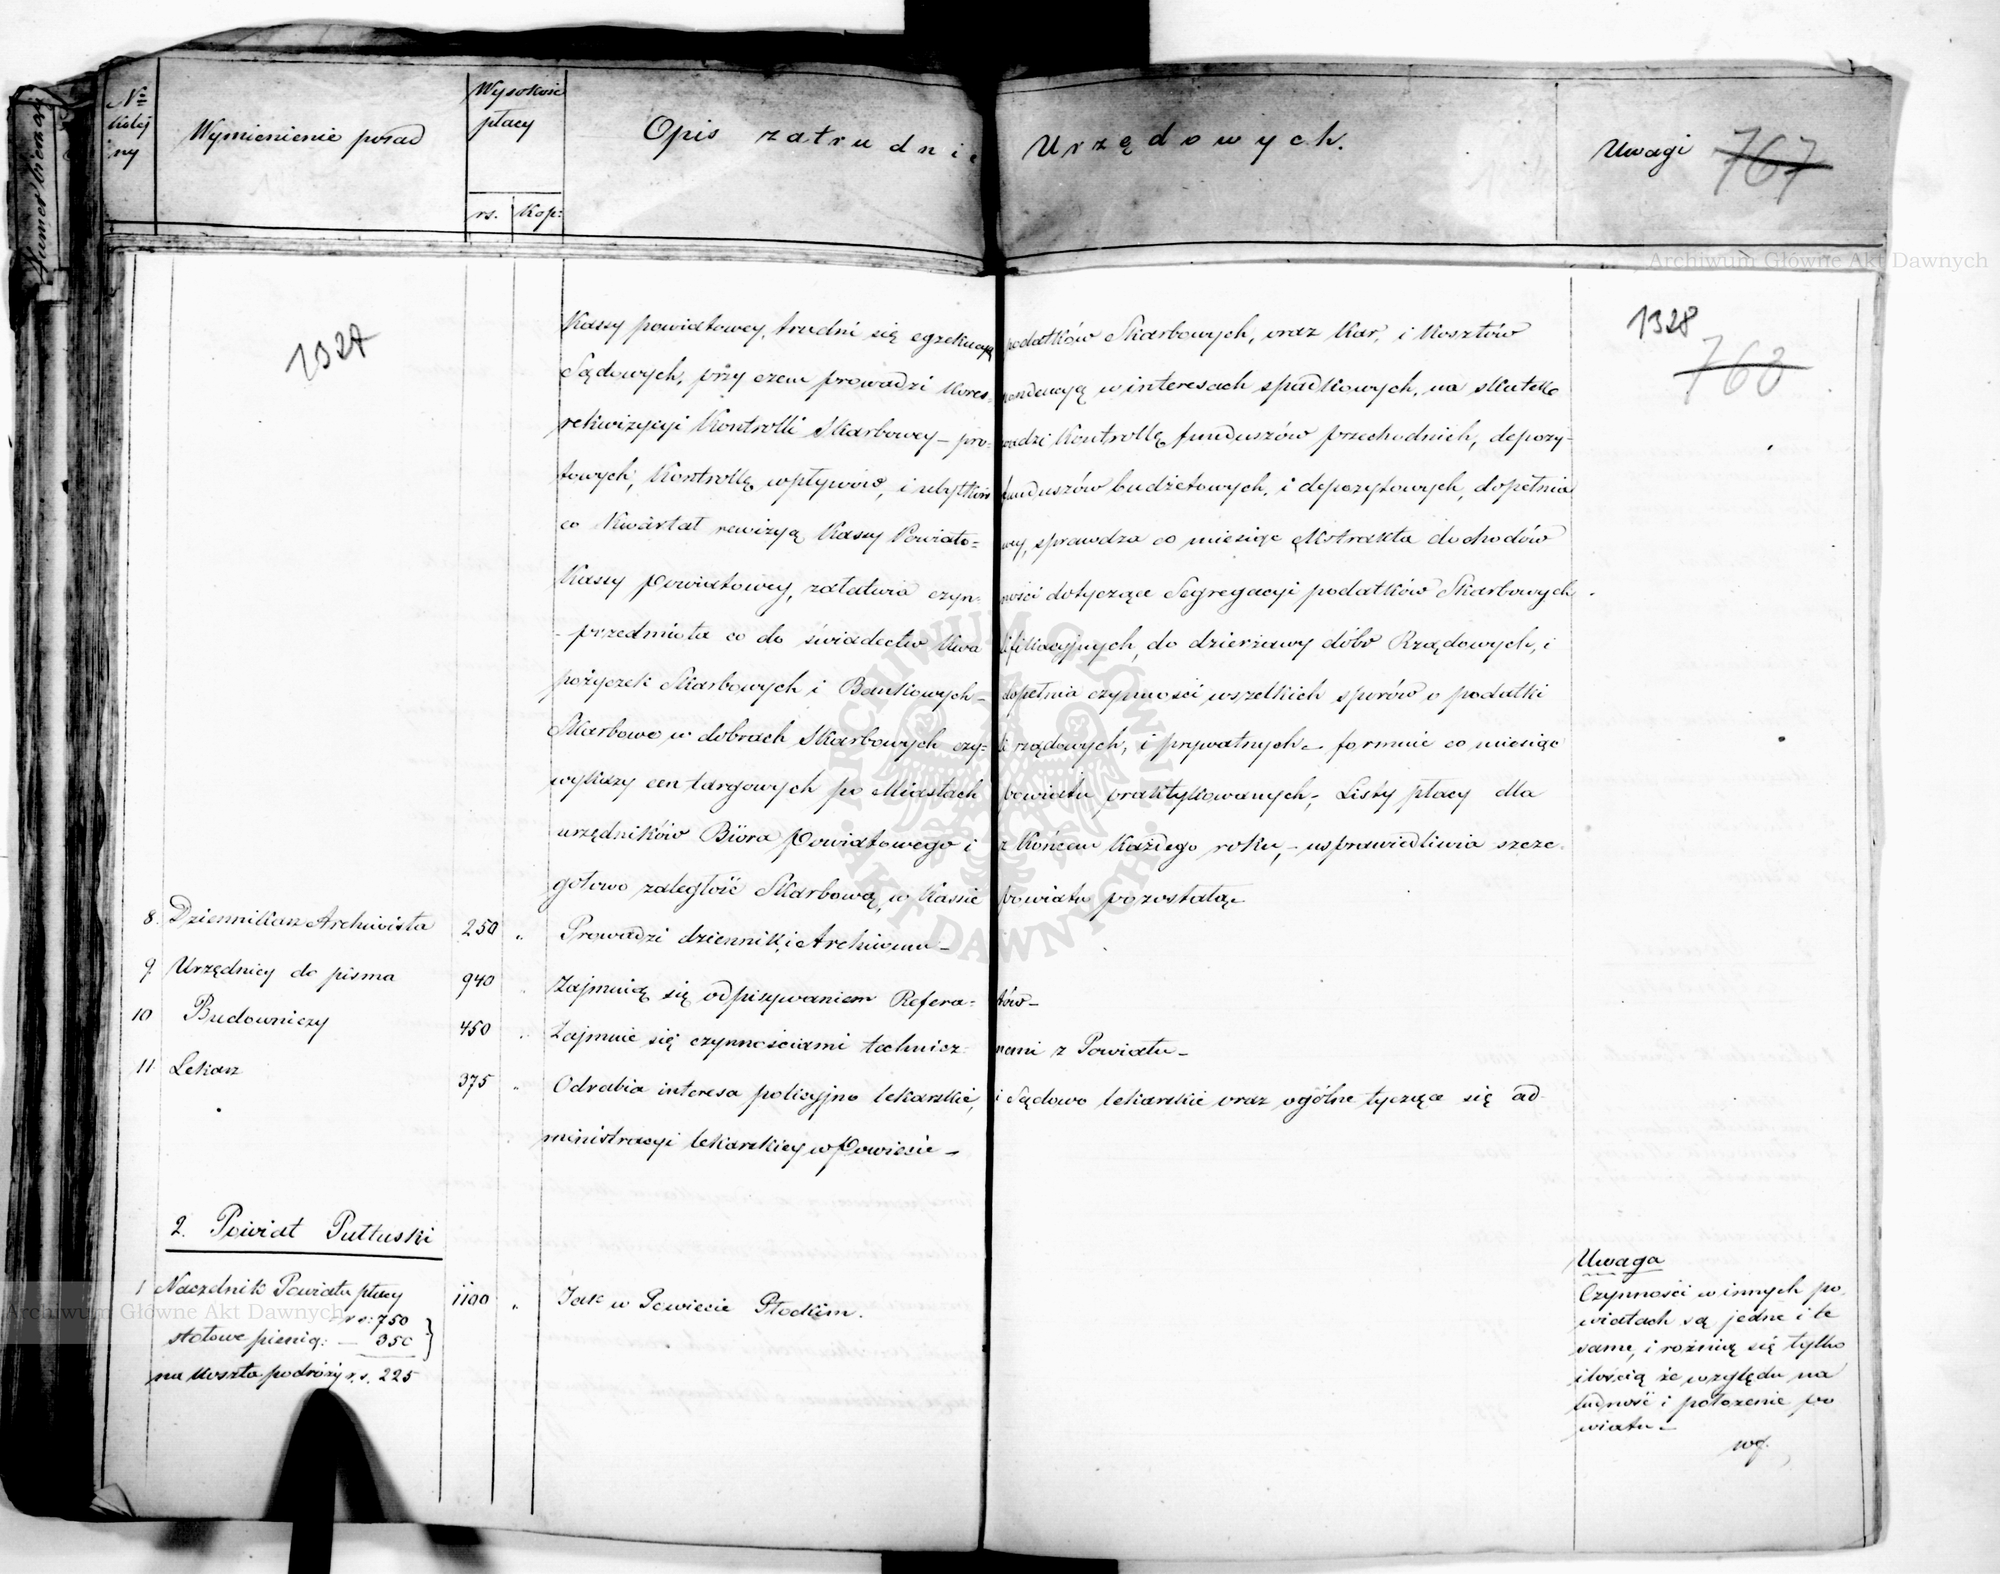 Nº kolejny
Wymienienie posad
Wysokość płacy
rs. Kop:
Opis zatrudnie Urzędowych.
Uwagi
767
1327
1328
768
Kassy powiatowey, trudni się egzekucyą podatków Skarbowych, oraz Kar, i Kosztów
Sądowych, przy czem prowadzi Korespondencyą w interesach spadkowych, na skutek
rekwizycyi Kontrolli Skarbowey – prowadzi Kontrollę funduszów przechodnich, depozy-
towych, Kontrollę wpływów, i ubytków funduszów budżetowych, i depozytowych, dopełnia
co Kwartał rewizyą Kassy Powiatowey, sprawdza co miesiąc extrakta dochodów
Kassy Powiatowey, załatwia czynności dotyczące Segregacyi podatków Skarbowych
– przedmiota co do świadectw Kwalifikacyjnych, do dzierżawy dóbr Rządowych, i
pożyczek Skarbowych i Bankowych – dopełnia czynności wszelkich sporów o podatki
Skarbowe w dobrach Skarbowych czyli rządowych, i prywatnych – formuie co miesiąc
wykazy cen targowych po Miastach powiatu praktykowanych, – Listy płacy dla
urzędników Biora Powiatowego i z Końcem Każdego roku, – usprawiedliwia szcze-
gółowo zaległość Skarbową, w Kassie powiatu pozostałą –
8. Dziennikarz Archiwista 250 „ Prowadzi dziennik, i Archiwum –
9. Urzędnicy do pisma 940 „ Zajmuią się odpisywaniem Referatów –
10 Budowniczy 450 „ Zajmuie się czynnościami technicznemi z Powiatu –
11 Lekarz 375 „ Odrabia interesa policyjno lekarskie, i Sądowo lekarskie oraz ogólne tyczące się ad-
ministracyi lekarskiey w Powiecie –
2. Powiat Pułtuski
1 Naczelnik Powiatu płacy 1100 „ Jak w Powiecie Płockim.
rs: 750
stołowe pienią: – 350
na koszta podróży r.s. 225
Uwaga
Czynności w innych po-
wiatach są jedne i te
same, i rożnią się tylko
ilością że względu na
ludność i położenie po
wiatu –
Archiwum Główne Akt Dawnych
Archiwum Główne Akt Dawnych
ARCHIWUM GŁÓWNE AKT DAWNYCH